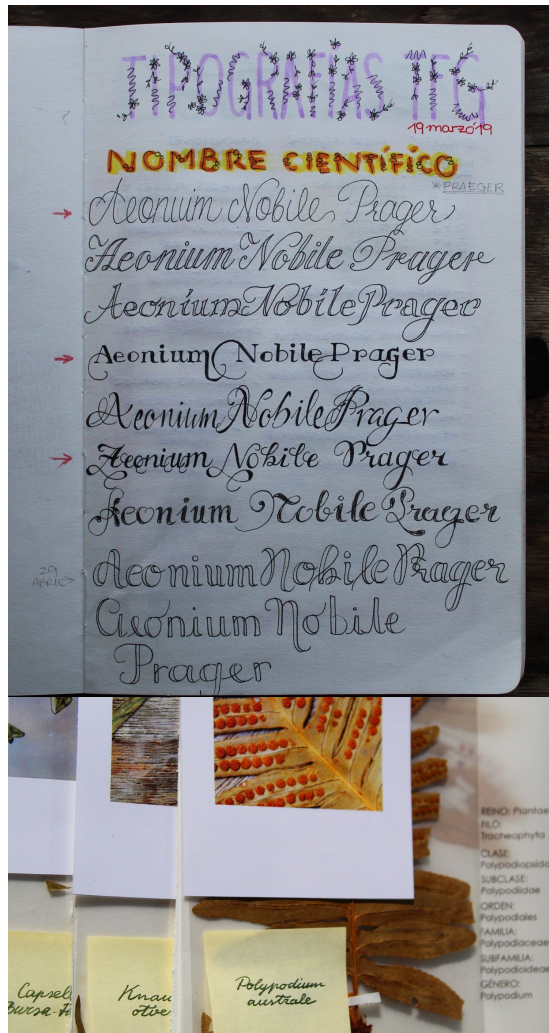 TIPOGRAFÍAS TFG
19 marzo 19
NOMBRE CIENTÍFICO
*PRAEGER
Aeonium Nobile Prager
Aeonium Nobile Prager
Aeonium Nobile Prager
Aeonium Nobile Prager
Aeonium Nobile Prager
Aeonium Nobile Prager
Aeonium Nobile Prager
29
ABRIL
Aeonium Nobile Prager
Aeonium Nobile
Prager
REINO: Plantae
FILO:
Tracheophyta
CLASE:
Polypodiopsid
SUBCLASE:
Polypodiidae
ORDEN:
Polypodiales
FAMILIA:
Polypodiaceae
SUBFAMILIA:
Polypodioideae
GÉNERO:
Polypodium
Capsell
Bursa-
Knau
Polypodium
australe